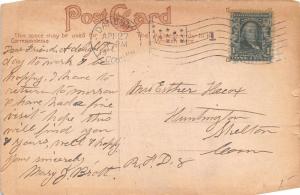 Post Card
This space may be used for
Correspondence
APR 27
CONN.
Dear Friend, A delightful
day to work & be
happy. I have to
return tomorrow
& have had a fine
visit hope this
will find you
& yours, well & happy
Yours sincerely,
Mary J. Brott
Mrs Esther Hacox
Huntington
Shelton
Conn
R.F.D. 8